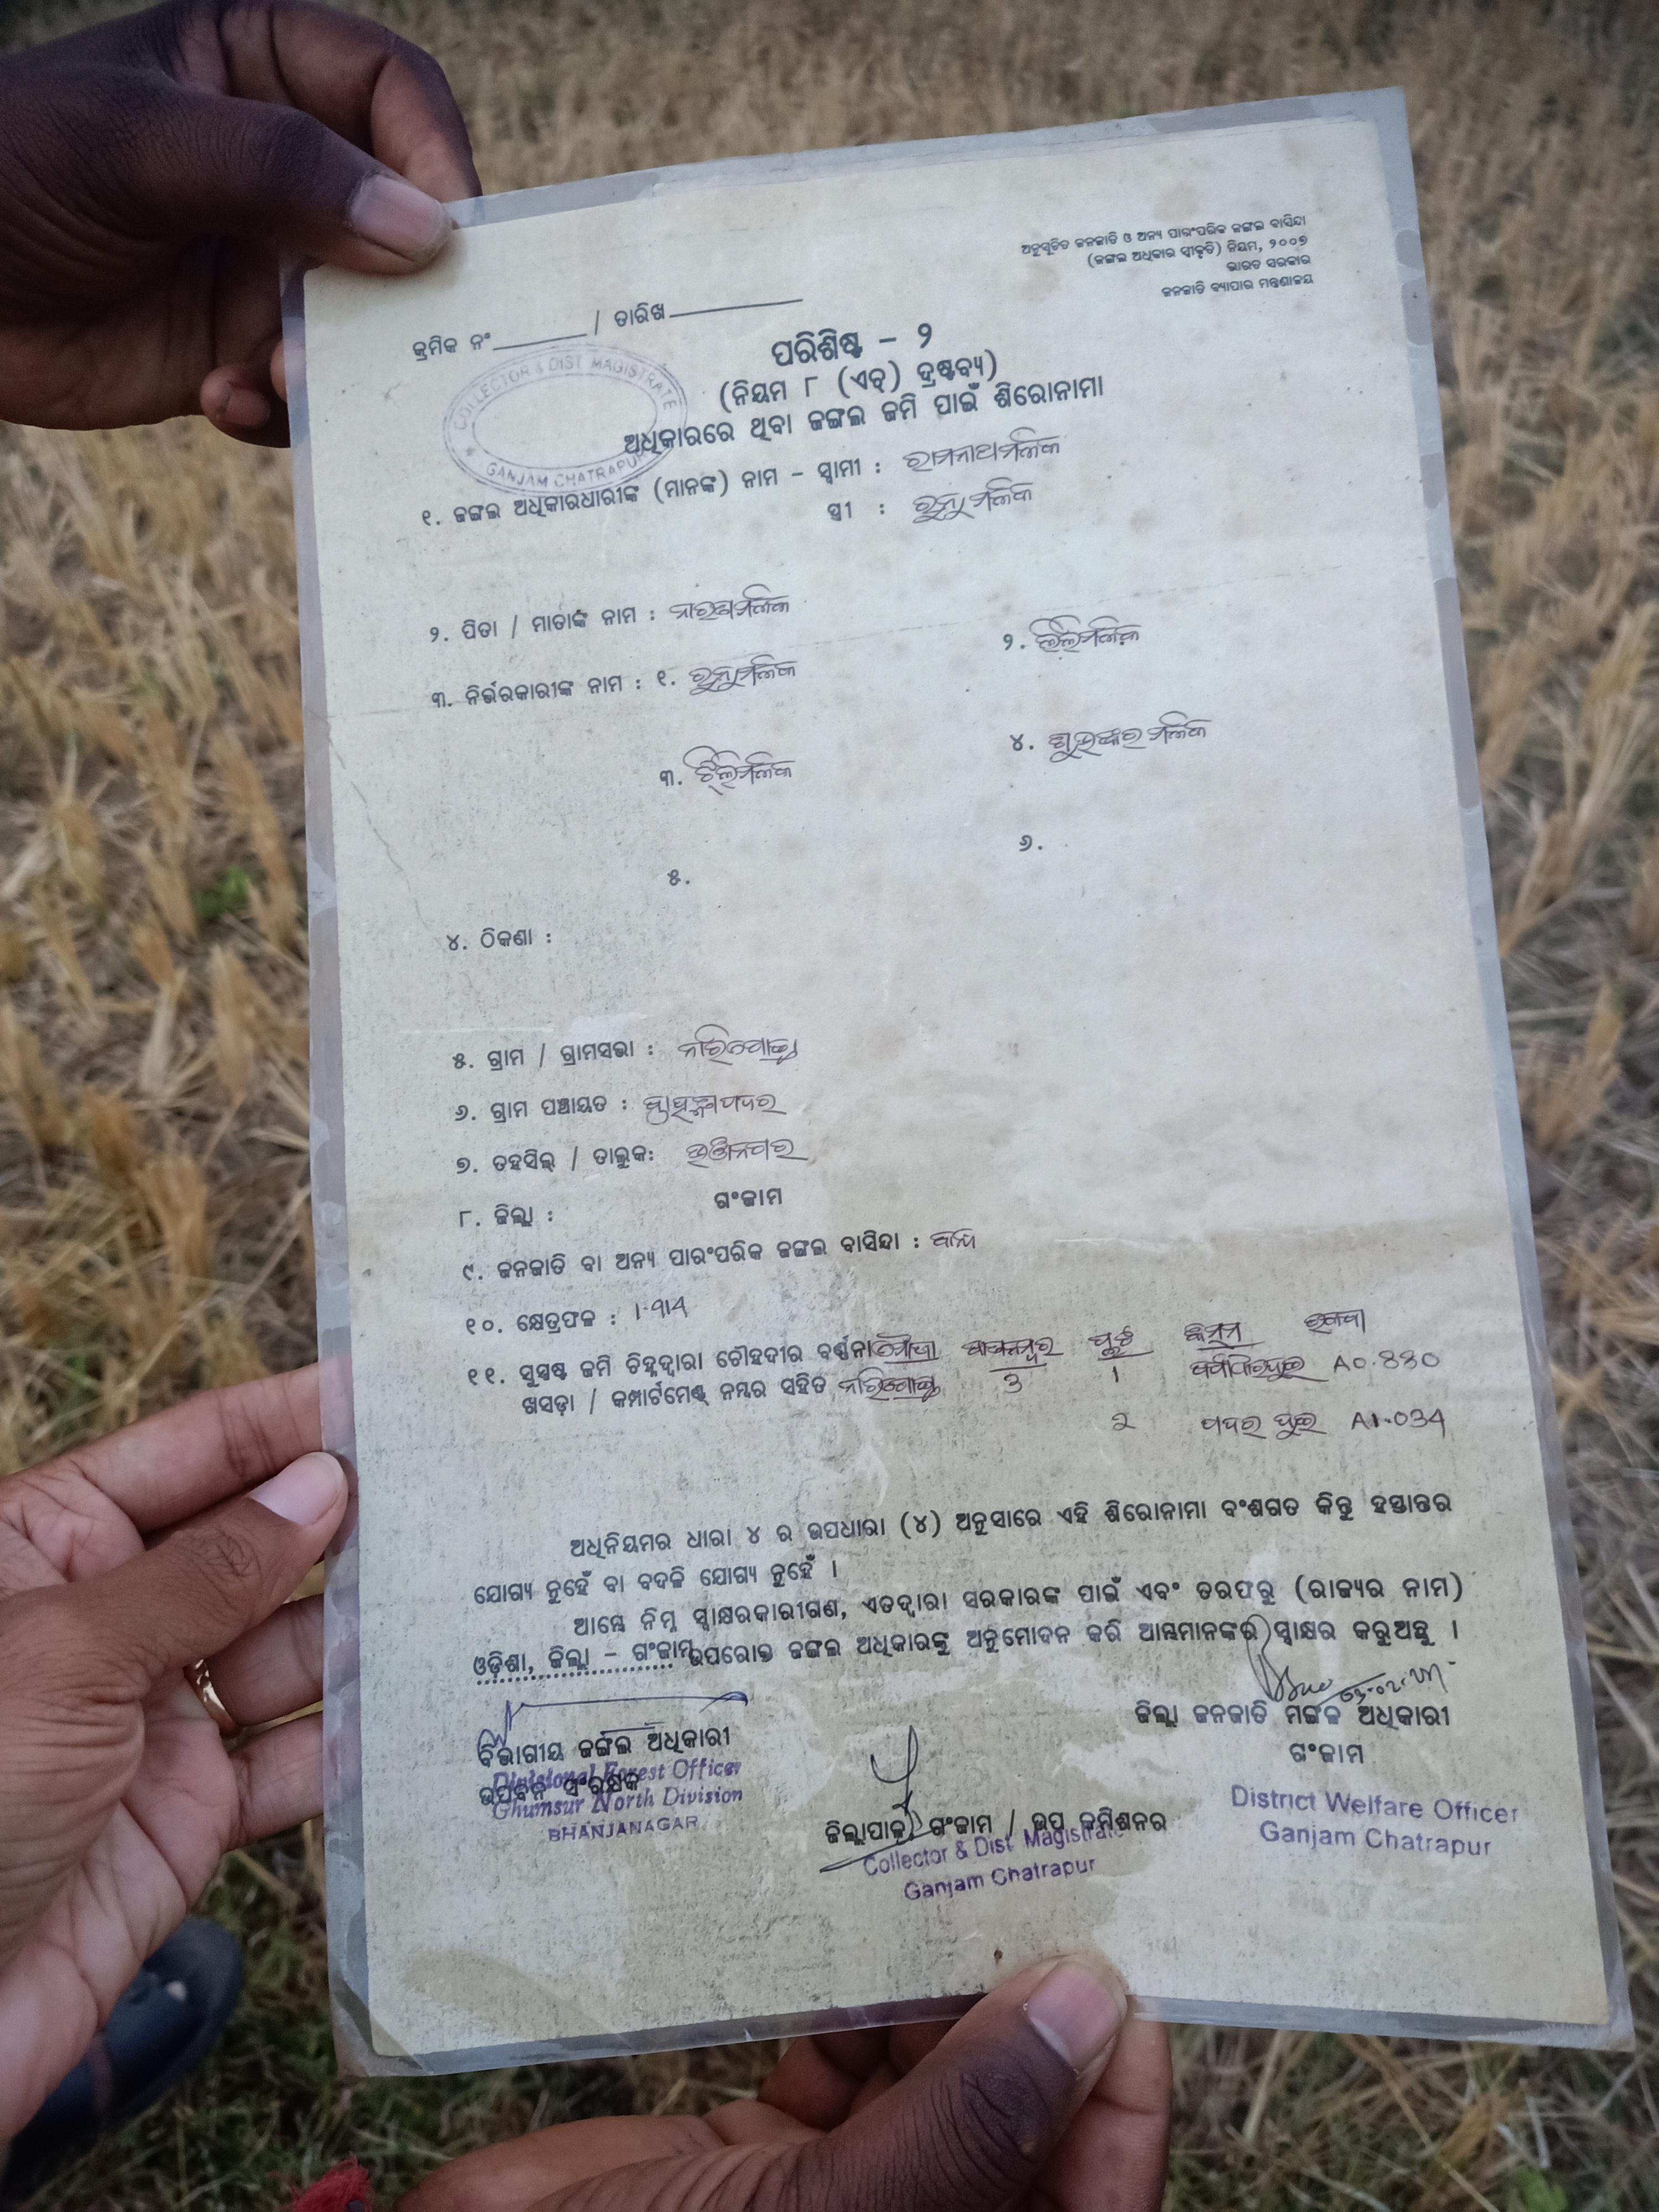 ଅନୁସୂଚିତ ଜନଜାତି ଓ ଅନ୍ୟ ପାରଂପରିକ ଜଙ୍ଗଲ ବାସିନ୍ଦା
(ଜଙ୍ଗଲ ଅଧିକାର ସ୍ୱୀକୃତି) ନିୟମ, ୨୦୦୭
ଭାରତ ସରକାର
ଜନଜାତି ବ୍ୟାପାର ମନ୍ତ୍ରଣାଳୟ
କ୍ରମିକ ନଂ / ତାରିଖ
COLLECTOR & DIST MAGISTRATE
GANJAM CHATRAPUR
ପରିଶିଷ୍ଟ – ୨
(ନିୟମ ୮ (ଏଚ୍) ଦ୍ରଷ୍ଟବ୍ୟ)
ଅଧିକାରରେ ଥିବା ଜଙ୍ଗଲ ଜମି ପାଇଁ ଶିରୋନାମା
୧. ଜଙ୍ଗଲ ଅଧିକାରଧାରୀଙ୍କ (ମାନଙ୍କ) ନାମ – ସ୍ୱାମୀ : ରାମନାଥ ମଳିକ
ସ୍ତ୍ରୀ : ରୁନୁ ମଳିକ
୨. ପିତା / ମାତାଙ୍କ ନାମ : ମଳିକ
୩. ନିର୍ଭରକାରୀଙ୍କ ନାମ : ୧. ରୁନୁ ମଳିକ
୨. ଲିଲି ମଳିକ
୩. ମଳିକ
୪. ଶୁଭଙ୍କର ମଳିକ
୫.
୬.
୪. ଠିକଣା :
୫. ଗ୍ରାମ / ଗ୍ରାମସଭା :
୬. ଗ୍ରାମ ପଞ୍ଚାୟତ :
୭. ତହସିଲ୍ / ତାଲୁକ: ଭଞ୍ଜନଗର
୮. ଜିଲ୍ଲା : ଗଂଜାମ
୯. ଜନଜାତି ବା ଅନ୍ୟ ପାରଂପରିକ ଜଙ୍ଗଲ ବାସିନ୍ଦା : କନ୍ଧ
୧୦. କ୍ଷେତ୍ରଫଳ :
୧୧. ସୁସ୍ପଷ୍ଟ ଜମି ଚିହ୍ନଦ୍ୱାରା ଚୌହଦୀର ବର୍ଣ୍ଣନା ମୌଜା ପ୍ଲଟ କିସମ ରକବା
ଖସଡ଼ା / କମ୍ପାର୍ଟମେଣ୍ଟ ନମ୍ବର ସହିତ 3 1
୨
ଅଧିନିୟମର ଧାରା ୪ ର ଉପଧାରା (୪) ଅନୁସାରେ ଏହି ଶିରୋନାମା ବଂଶଗତ କିନ୍ତୁ ହସ୍ତାନ୍ତର
ଯୋଗ୍ୟ ନୁହେଁ ବା ବଦଳି ଯୋଗ୍ୟ ନୁହେଁ ।
ଆମ୍ଭେ ନିମ୍ନ ସ୍ୱାକ୍ଷରକାରୀଗଣ, ଏତଦ୍ୱାରା ସରକାରଙ୍କ ପାଇଁ ଏବଂ ତରଫରୁ (ରାଜ୍ୟର ନାମ)
ଓଡ଼ିଶା, ଜିଲ୍ଲା – ଗଂଜାମ ଉପରୋକ୍ତ ଜଙ୍ଗଲ ଅଧିକାରକୁ ଅନୁମୋଦନ କରି ଆମ୍ଭମାନଙ୍କର ସ୍ୱାକ୍ଷର କରୁଅଛୁ ।
ବିଭାଗୀୟ ଜଙ୍ଗଲ ଅଧିକାରୀ
ଉପବନ ସଂରକ୍ଷକ
Divisional Forest Officer
Ghumsur North Division
BHANJANAGAR
ଜିଲ୍ଲାପାଳ ଗଂଜାମ / ଉପ କମିଶନର
Collector & Dist. Magistrate
Ganjam Chatrapur
ଜିଲ୍ଲା ଜନଜାତି ମଙ୍ଗଳ ଅଧିକାରୀ
ଗଂଜାମ
District Welfare Officer
Ganjam Chatrapur